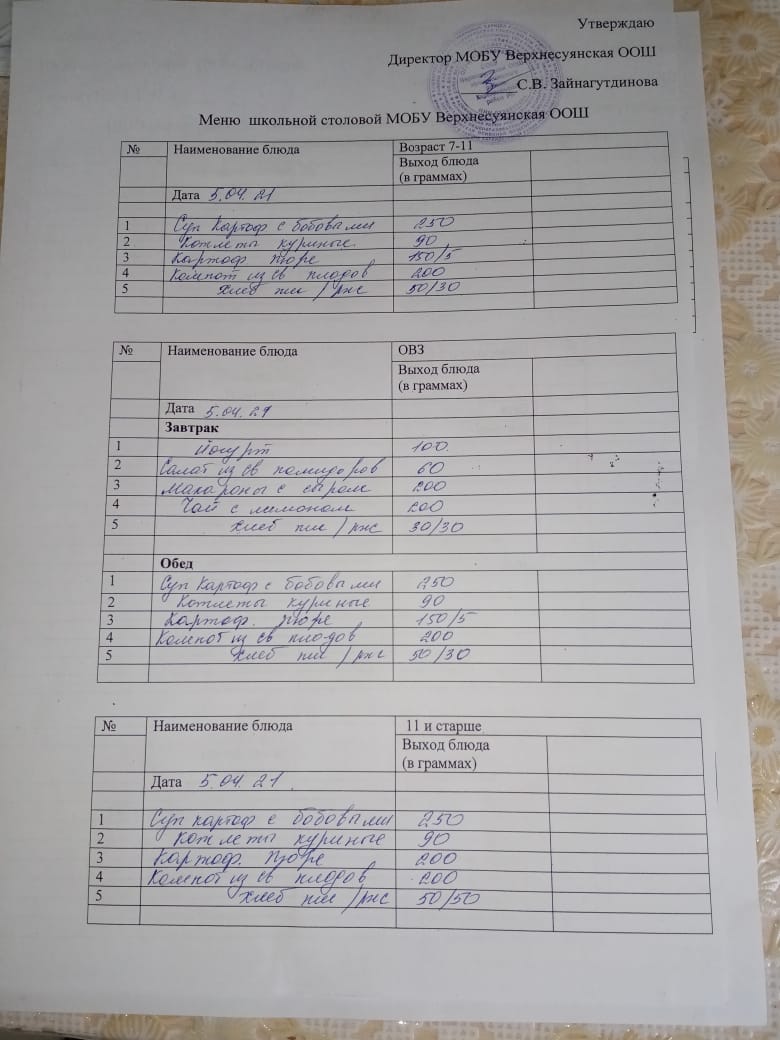 Утверждаю
Директор МОБУ Верхнесуянская ООШ
С.В. Зайнагутдинова
Меню школьной столовой МОБУ Верхнесуянская ООШ
№ Наименование блюда Возраст 7-11
Выход блюда
(в граммах)
Дата 5.04.21
1 Суп картоф с бобовыми 250
2 Котлеты куриные 90
3 Картоф пюре 150/5
4 Компот из св плодов 200
5 Хлеб пш / ржс 50/30
№ Наименование блюда ОВЗ
Выход блюда
(в граммах)
Дата 5.04.21
Завтрак
1 Йогурт 100
2 Салат из св помидоров 60
3 Макароны с сыром 200
4 Чай с лимоном 200
5 Хлеб пш / ржс 30/30
Обед
1 Суп картоф с бобовыми 250
2 Котлеты куриные 90
3 Картоф. пюре 150/5
4 Компот из св плодов 200
5 Хлеб пш / ржс 50/30
№ Наименование блюда 11 и старше
Выход блюда
(в граммах)
Дата 5.04.21.
1 Суп картоф с бобовыми 250
2 Котлеты куриные 90
3 Картоф. пюре 200
4 Компот из св плодов 200
5 Хлеб пш / ржс 50/50